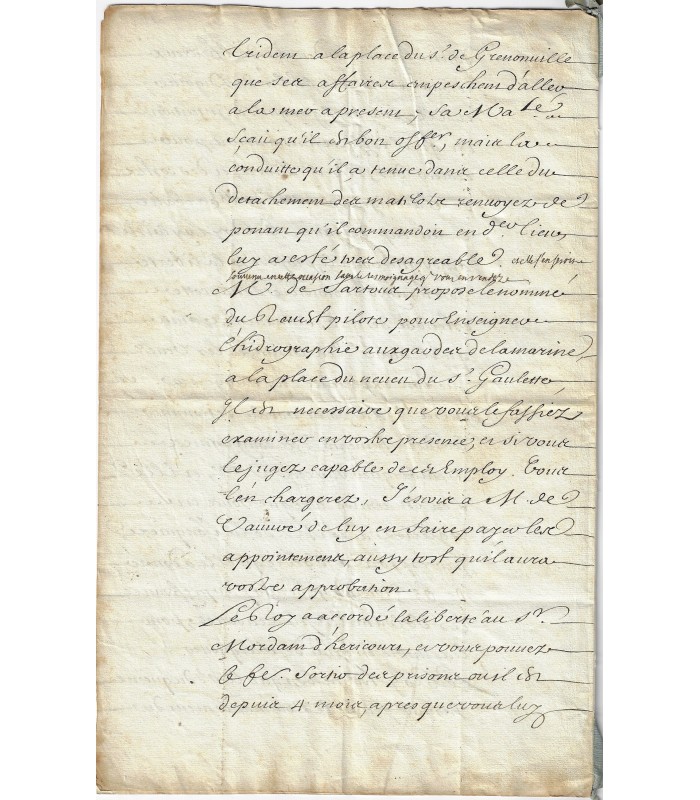 Trident a la place du Sr. de Grenonville
que ses affaires empeschent d'aller
a la mer a present, Sa Mate.
Scait qu'il est bon offer., mais la
conduitte qu'il a tenue dans celle du
detachement des matelots renvoyez de
ponant qu'il commandoit en der. lieu,
luy a esté tres desagreable
Souvenu en cette occasion vous en rendre
M. de Sartoux propose le nommé
du pilote pour Enseigner
l'hidrographie aux gardes de la marine,
a la place du neveu du Sr. Gaulette,
Il est necessaire que vous le fassiez
examiner en vostre presence, et si vous
le jugez capable de cet Employ. Vous
l'en chargerez, J'escris a M. de
Vauvré de luy en faire payer les
appointemens, aussy tost qu'il aura
vostre approbation.
Le Roy a accordé la liberté au Sr.
Mordant d'hericourt, et vous pouvez
le fe. Sortir des prisons ou il est
depuis 4 mois, apres que vous luy